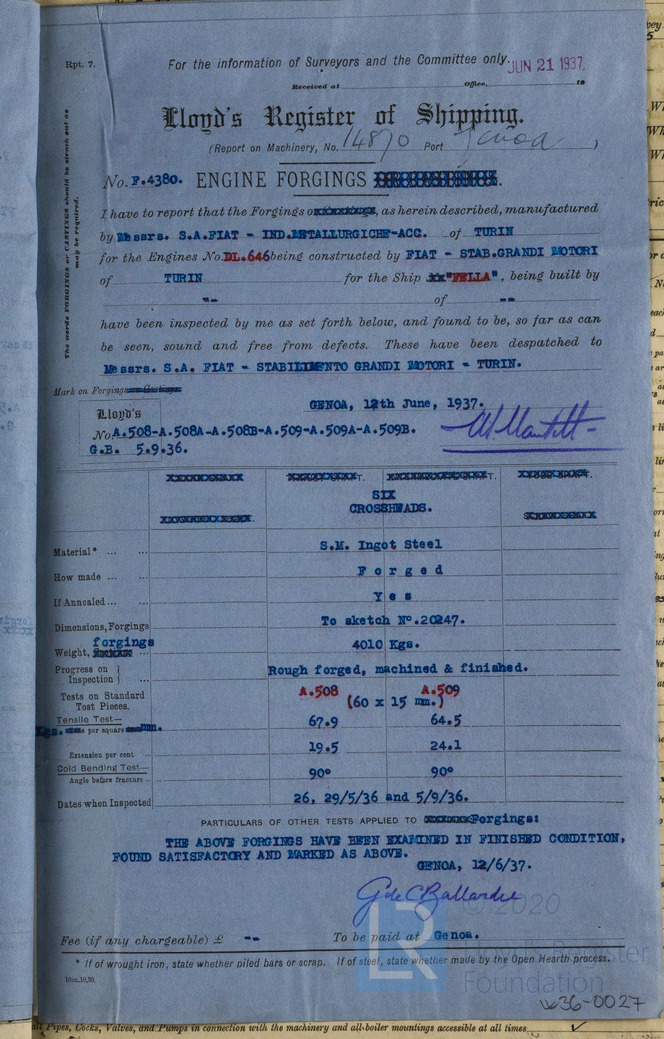 Rpt. 7.
For the information of Surveyors and the Committee only.
JUN 21 1937
Received at Office, 19
Lloyd's Register of Shipping.
(Report on Machinery, No. 14870 Port Genoa )
No. F.4380. ENGINE FORGINGS
The words FORGINGS or CASTINGS should be struck out as may be required.
I have to report that the Forgings , as herein described, manufactured
by Messrs. S.A.FIAT - IND.METALLURGICHE-ACC. of TURIN
for the Engines No. DL.646 being constructed by FIAT - STAB.GRANDI MOTORI
of TURIN for the Ship "FELLA", being built by
"- of --
have been inspected by me as set forth below, and found to be, so far as can
be seen, sound and free from defects. These have been despatched to
Messrs. S.A. FIAT - STABILIMENTO GRANDI MOTORI - TURIN.
Mark on Forgings or Castings
GENOA, 12th June, 1937.
Lloyd's
No. A.508-A.508A-A.508B-A.509-A.509A-A.509B.
G.B. 5.9.36.
SIX
CROSSHEADS.
Material* ... ... S.M. Ingot Steel
How made ... ... Forged
If Annealed ... ... Yes
Dimensions, Forgings To sketch No.20247.
Weight, forgings ... 4010 Kgs.
Progress on Inspection Rough forged, machined & finished.
Tests on Standard Test Pieces. A.508 A.509
(60 x 15 mm.)
Tensile Test— 67.9 64.5
Kgs. per square mm.
Extension per cent 19.5 24.1
Cold Bending Test— 90° 90°
Angle before fracture ...
Dates when Inspected 26, 29/5/36 and 5/9/36.
PARTICULARS OF OTHER TESTS APPLIED TO Forgings:
THE ABOVE FORGINGS HAVE BEEN EXAMINED IN FINISHED CONDITION,
FOUND SATISFACTORY AND MARKED AS ABOVE.
GENOA, 12/6/37.
G de C Ballardie
© 2020
Fee (if any chargeable) £ "- To be paid at Genoa.
LR Lloyd's Register
Foundation
* If of wrought iron, state whether piled bars or scrap. If of steel, state whether made by the Open Hearth process.
10m,10,30.
W36-0027
all Pipes, Cocks, Valves, and Pumps in connection with the machinery and all boiler mountings accessible at all times